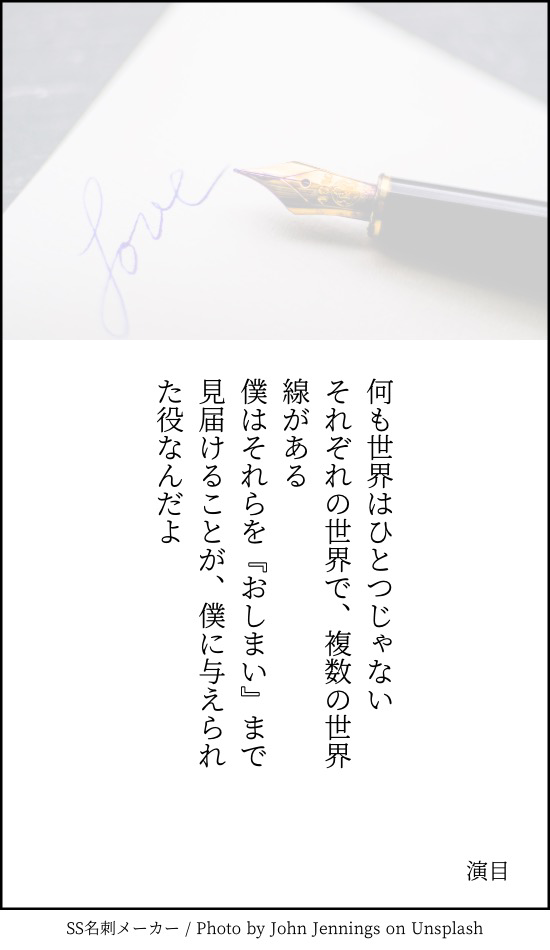 love
何も世界はひとつじゃない
それぞれの世界で、複数の世界
線がある
僕はそれらを『おしまい』まで
見届けることが、僕に与えられ
た役なんだよ
演目
SS名刺メーカー / Photo by John Jennings on Unsplash